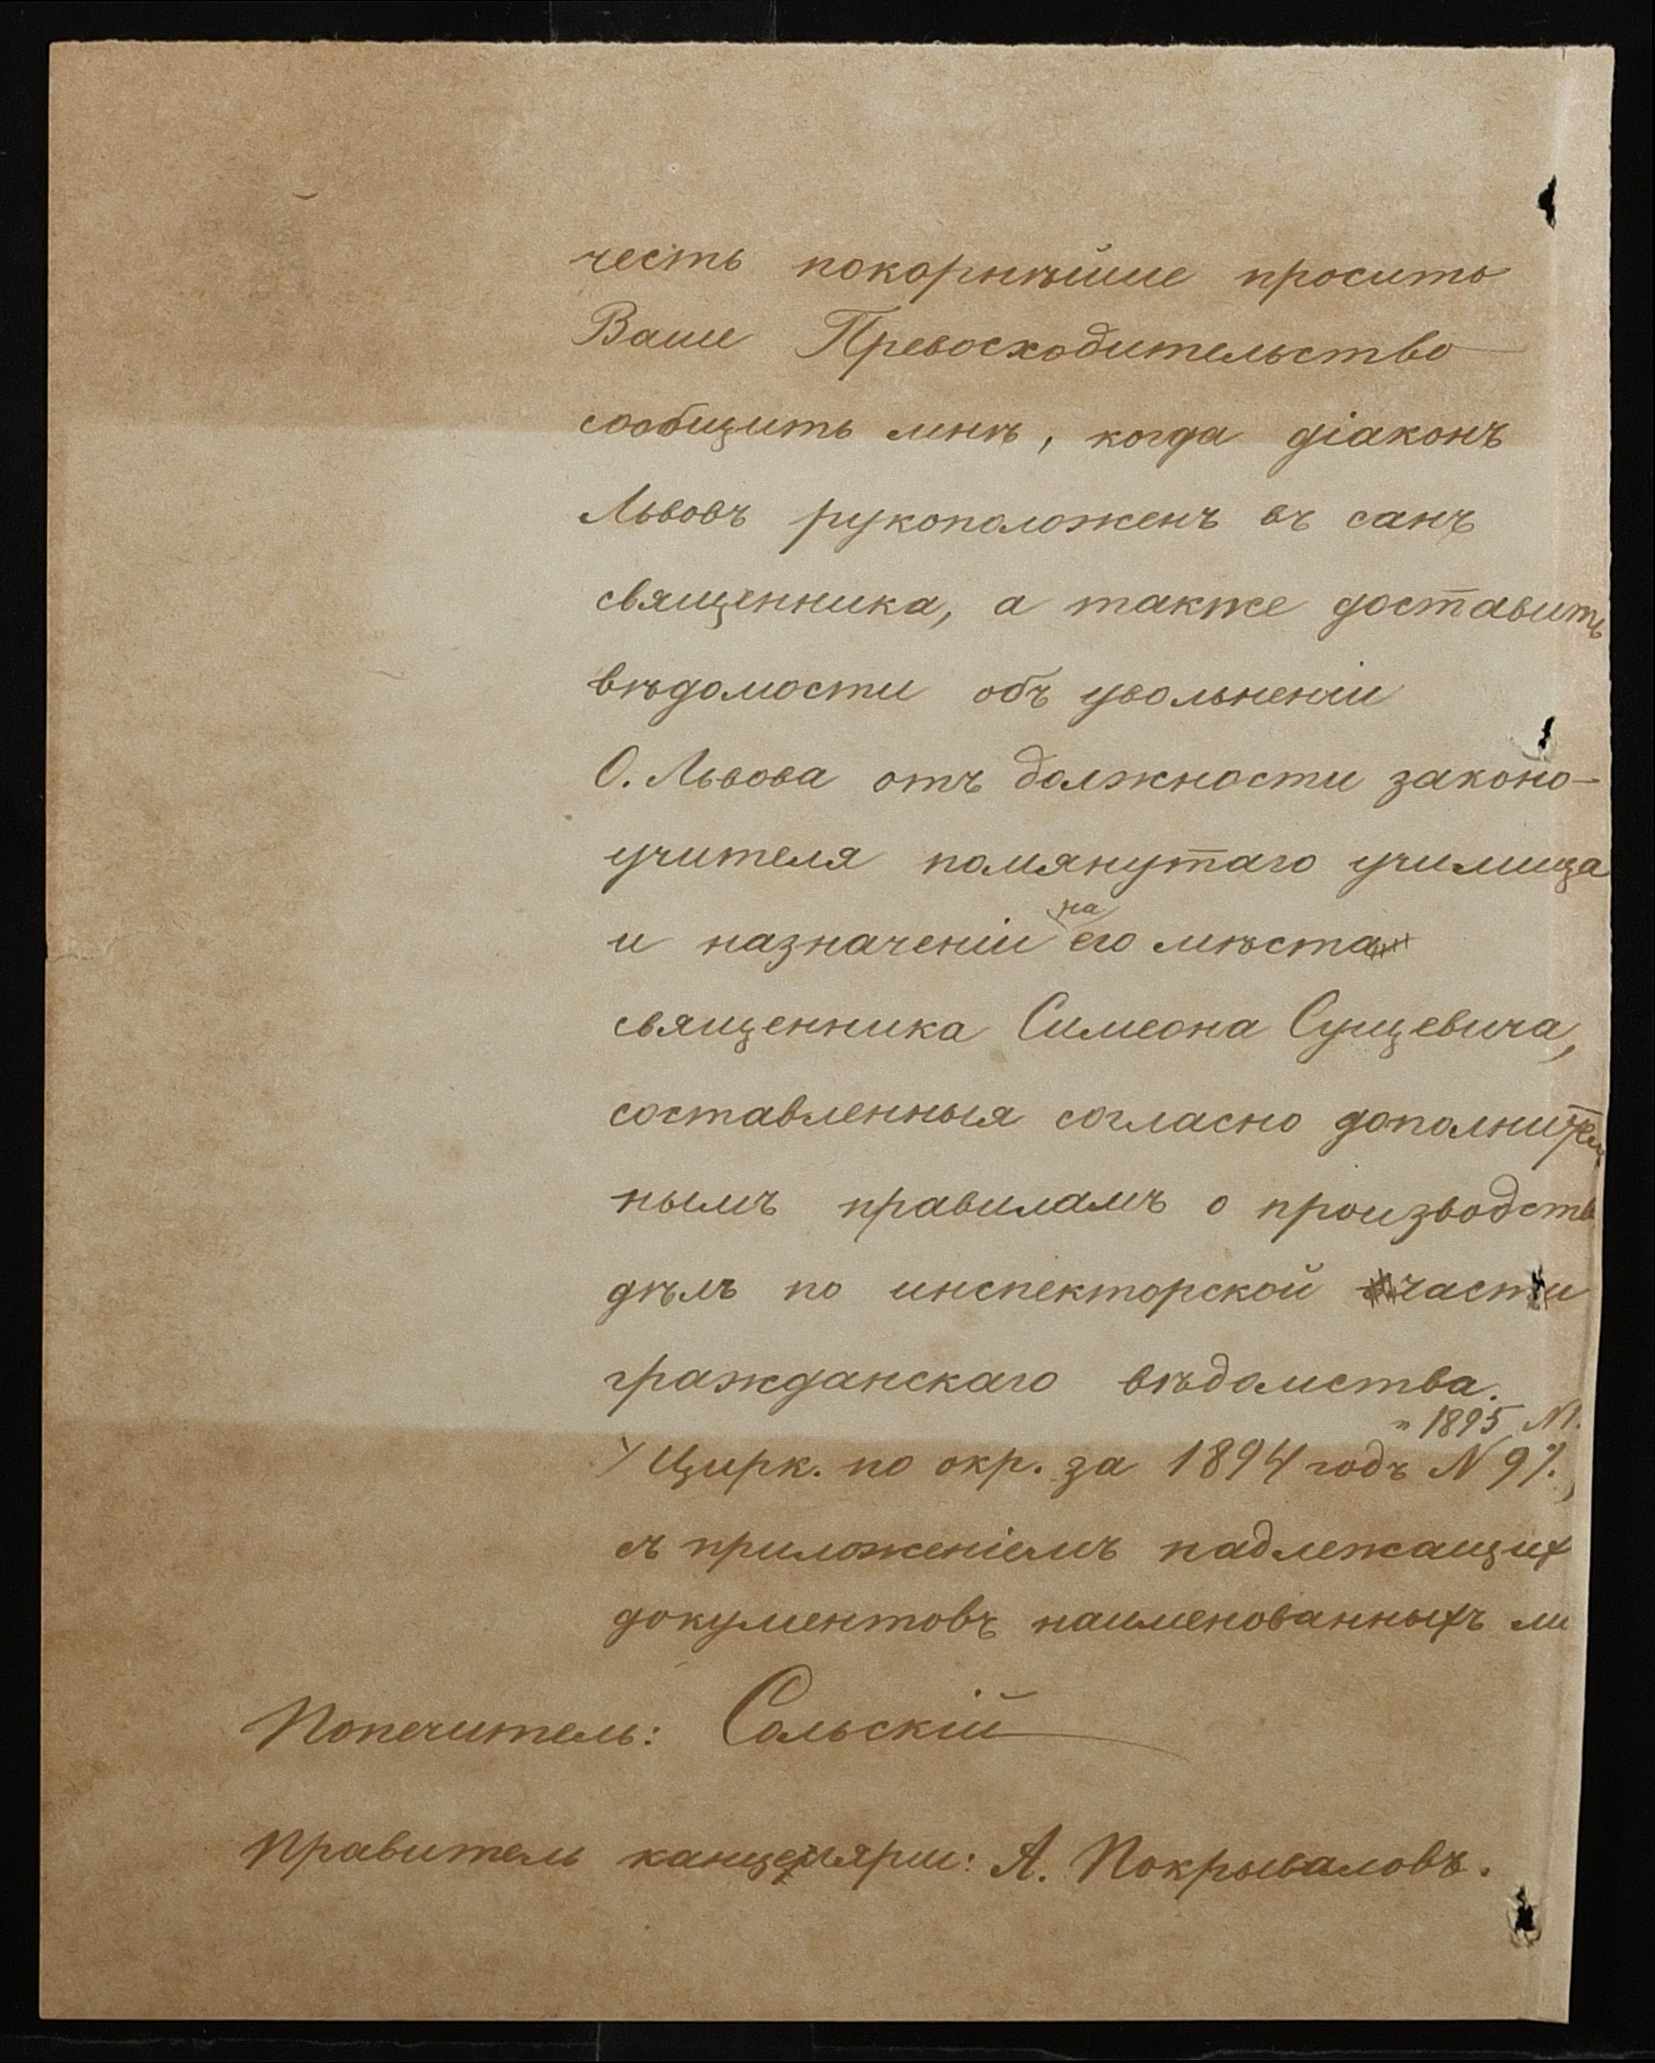 честь покорнѣйше просить
Ваше Превосходительство
сообщить мнѣ, когда діаконъ
Львовъ рукоположенъ въ санъ
священника, а также доставить
вѣдомости объ увольненіи
О. Львова отъ должности законо-
учителя помянутаго училища
на
и назначеніи его мѣста
священника Симеона Сущевича,
составленныя согласно дополнител
нымъ правиламъ о производств
дѣлъ по инспекторской части
гражданскаго вѣдомства.
" 1895 №1.
/ Цирк. по окр. за 1894 годъ №9/.,
съ приложеніемъ надлежащих
документовъ наименованныхъ
Попечитель: Сольскій
Правитель канцеляріи: А. Покрываловъ.